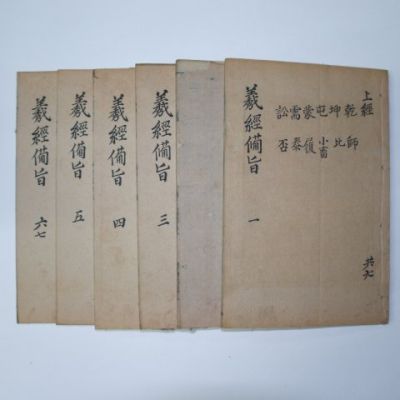 上經
乾 師
坤 比
屯 小畜
蒙 履
需 泰
訟 否
羲經備旨 一
羲經備旨 三
羲經備旨 四
羲經備旨 五
羲經備旨 六七